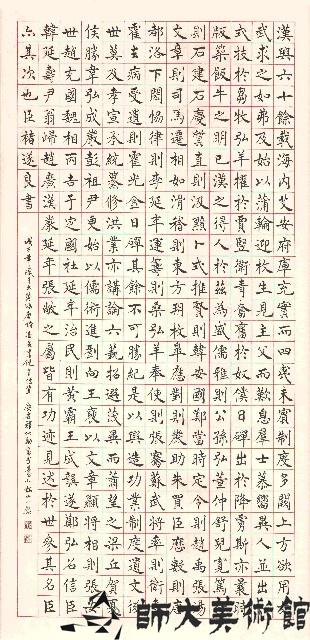 漢興六十餘載海內艾安府庫充實而四夷未賓制度多闕上方欲用文
武求之如弗及始以蒲輪迎枚生見主父而歎息群士慕嚮異人並出卜
式拔於芻牧弘羊擢於賈豎衛青奮於奴僕日磾出於降虜斯亦曩時
版築飯牛之明已漢之得人於茲為盛儒雅則公孫弘董仲舒兒寬篤行
則石建石慶質直則汲黯卜式推賢則韓安國鄭當時定令則趙禹張湯
文章則司馬遷相如滑稽則東方朔枚皋應對則嚴助朱買臣歷數則唐
都洛下閎協律則李延年運籌則桑弘羊奉使則張騫蘇武將率則衛青
霍去病受遺則霍光金日磾其餘不可勝紀是以興造功業制度遺文後
世莫及孝宣承統纂修洪業亦講論六藝招選茂異而蕭望之梁丘賀夏
侯勝韋玄成嚴彭祖尹更始以儒術進劉向王褒以文章顯將相則張安
世趙充國魏相丙吉于定國杜延年治民則黃霸王成龔遂鄭弘召信臣
韓延壽尹翁歸趙廣漢嚴延年張敞之屬皆有功迹見述於世參其名臣
亦其次也臣褚遂良書
師大美術館